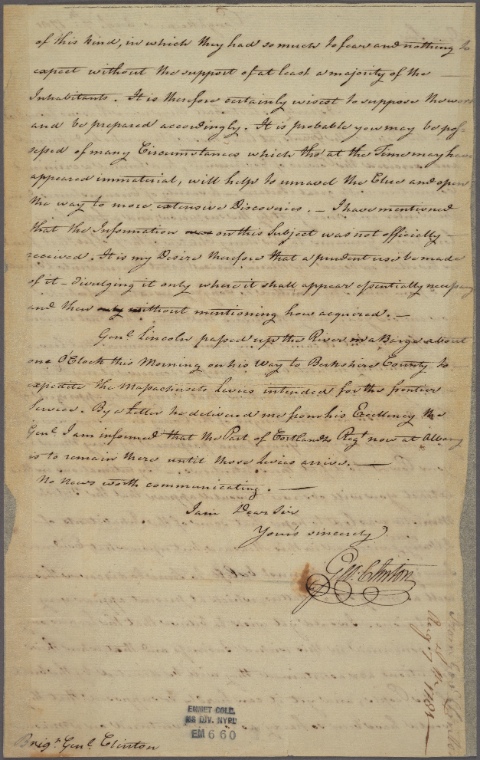 of this kind, in which they had so much to fear and nothing to
expect without the support of at least a majority of the
Inhabitants. It is therefore certainly wisest to suppose the worst
and be prepared accordingly. It is probable you may be pos-
sessed of many Circumstances which tho' at the Time may have
appeared immaterial, will help to unravel the Clue and open
the way to more extensive Discoveries. – I have mentioned
that the Information on this Subject was not officially
received. It is my Desire therefore that a prudent use be made
of it – divulging it only where it shall appear essentially necessary
and then without mentioning how acquired. –
Genl. Lincoln passed up the River in a Barge about
one O'Clock this Morning on his Way to Berkshire County to
expedite the Massachusets Levies intended for the frontier
Service. By a Letter he delivered me from his Excellency the
Genl. I am informed that the Part of Cortlandts Regt. now at Albany
is to remain there until those Levies arrive. —
No News worth communicating. —
I am Dear Sir
Yours sincerely
Geo. Clinton
EMMET COLL.
MS DIV. NYPL
EM 660
Brigr. Genl. Clinton